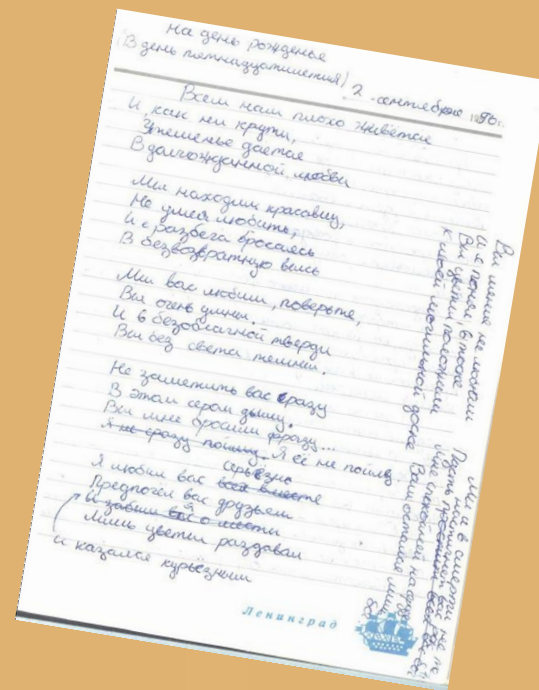 На день рожденья
(В день пятнадцатилетия) 2 сентября 1980 г.
Всем нам плохо живётся
И, как ни крути,
Утешенье даётся
В долгожданной любви
Мы находим красавиц,
Не умея любить,
И с разбега бросаясь
В безвозвратную высь
Мы вас любим, поверьте,
Вы очень умны.
И в безоблачной тверди
Вы без света темны.
Не заметить вас сразу
В этом сером дыму.
Вы мне бросили фразу...
Я не сразу пойму Я её не пойму.
Я любил вас всех вместе серьёзно
Предпочёл вас друзьям
И забыл о мести
Лишь цветы раздавал
И казался курьёзным
Вы меня не любили
И я понял, в тоске
Вы цветы положили
к моей могильной доске
и в смерти
Пусть
мне спокойней на
Вам остался лишь
Ленинград